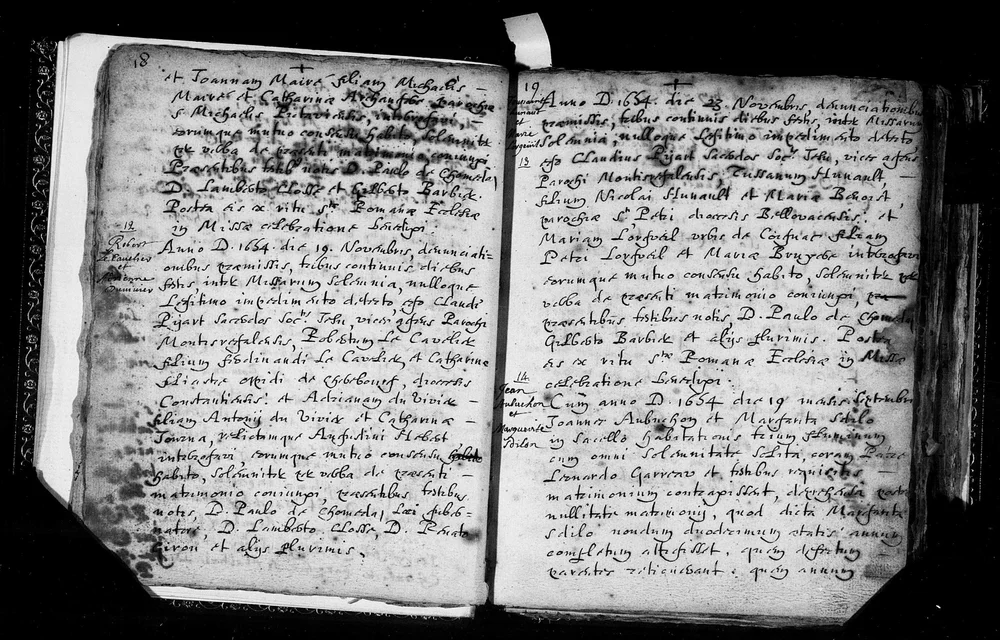 18
et Joannam Mairé filiam Michaelis
Mairé et Catharinæ Archambos Parochiæ
S. Michaelis Pictaviensis, interrogavi,
eorumque mutuo consensu habito, solemnitr
per verba de præsenti matrimonio, coniunxi
Præsentibus testib notis D. Paulo de Chomedai
D. Lamberto Closse et Gilberto Barbier.
Postea eis ex ritu stæ Romanæ Ecclesiæ
in Missæ celebratione benedixi.
12
Robert
le Cavelier
et
Adrienne
Duvivier
Anno D. 1654. die 19. Novembris, denunciati-
onibus præmissis, tribus continuis diebus
festis inter Missarum solemnia, nulloque
Legitimo impedimento detecto, ego Claudi
Pijart Sacerdos Soctis Jesu, vices agens Parochi
Montisregalensis, Robertum Le Cavelier
filium Ferdinandi Le Cavelier et Catharinæ
filiastre oppidi de Cherebourg, diocesis
Constantiensis: et Adrianam du Vivier
filiam Antonij du Vivier et Catharinæ
Journa, relictamque Augustini Hebert
interrogavi, eorumque mutuo consensu
habito, solemniter per verba de præsenti
matrimonio coniunxi, præsentibus testibus
notis, D. Paulo de Chomedai, Loci guber-
natore, D. Lamberto Closse, D. Renato
et alijs plurimis.
19
Toussaint
Hunault
et
Marie
Lorgueil
13
Anno D. 1654. die 23 Novembris denunciationibus
præmissis, tribus continuis diebus festis, inter Missarum
Solemnia, nulloque Legitimo impedimento detecto
ego Claudius Pijart Sacerdos Soctis Jesu, vices agens
Parochi Montisregalensis Tussanum Hunault
filium Nicolai Hunault et Mariæ Benoist,
parochiæ sti Petri diocesis Bellovacensis: et
Mariam Lorgueil urbis de Coignac filiam
Petri Lorgueil et Mariæ Bruyere interrogavi
eorumque mutuo consensu habito, solemniter per
verba de præsenti matrimonio coniunxi
præsentibus testibus notis, D. Paulo de Chomedai
Gilberto Barbier et alijs plurimis. Postea
eis ex ritu stæ Romanæ Ecclesiæ in Missæ
celebratione benedixi.
14
Jean
Aubuchon
et
Marguerite
Sedilot
Cum anno D. 1654 die 19 mensis Septembris
Joannes Aubuchon et Margarita Sdilo
in sacello habitationis trium fluminum
cum omni solemnitate solita, coram Patre
Leonardo Garreau et testibus requisitis
matrimonium contraxissent, deprehensa postea
nullitate matrimonij, quod dicta Margarita
Sdilo nondum duodecimum ætatis annum
completum attigisset, quem defectum
parentes reticuerant: quem annum